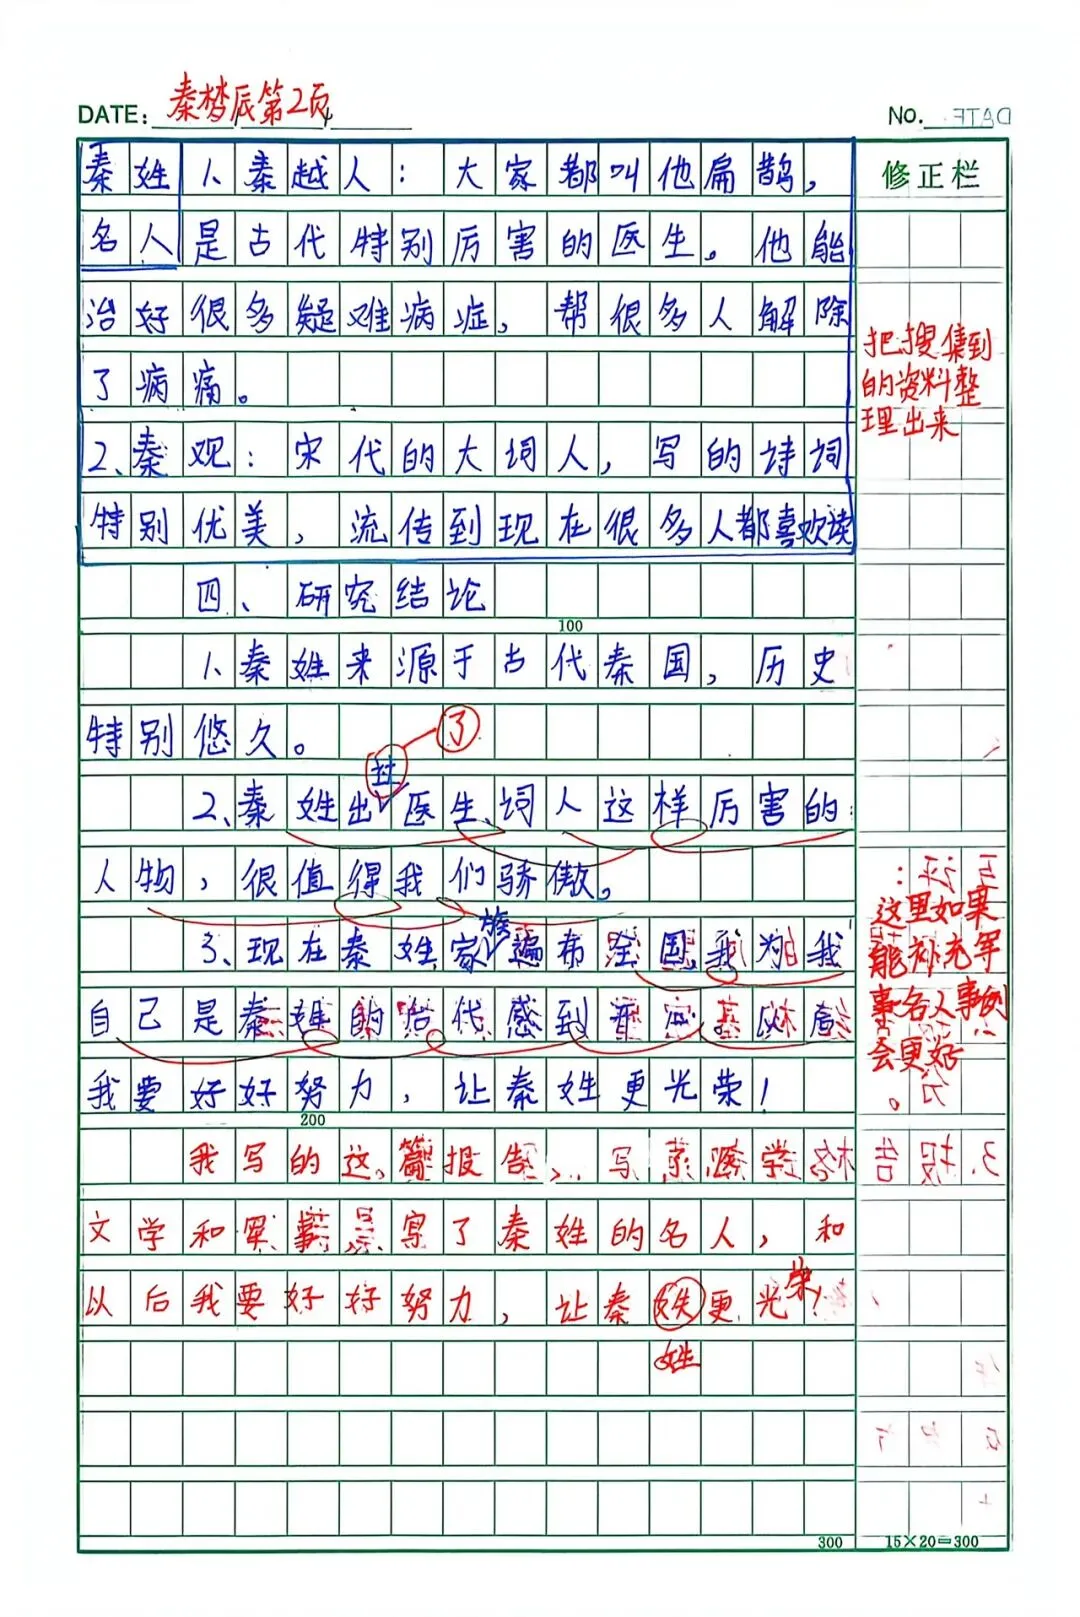 DATE: 秦梦辰第2页
No.
修正栏
秦姓 1、秦越人：大家都叫他扁鹊，
名人 是古代特别厉害的医生。他能
治好很多疑难病症，帮很多人解除
了病痛。
2、秦观：宋代的大词人，写的诗词
特别优美，流传到现在很多人都喜欢读
把搜集到
的资料整
理出来
四、研究结论
100
1、秦姓来源于古代秦国，历史
特别悠久。
了
2、秦姓出过医生、词人这样厉害的
人物，很值得我们骄傲。
3、现在秦姓家族遍布全国，我为我
自己是秦姓的后代感到
我要好好努力，让秦姓更光荣！
这里如果
能补充军
事名人事例
会更好
。
200
我写的这篇报告，写
文学和军事 写了秦姓的名人，和
以后我要好好努力，让秦更光荣！
姓
300
15×20=300